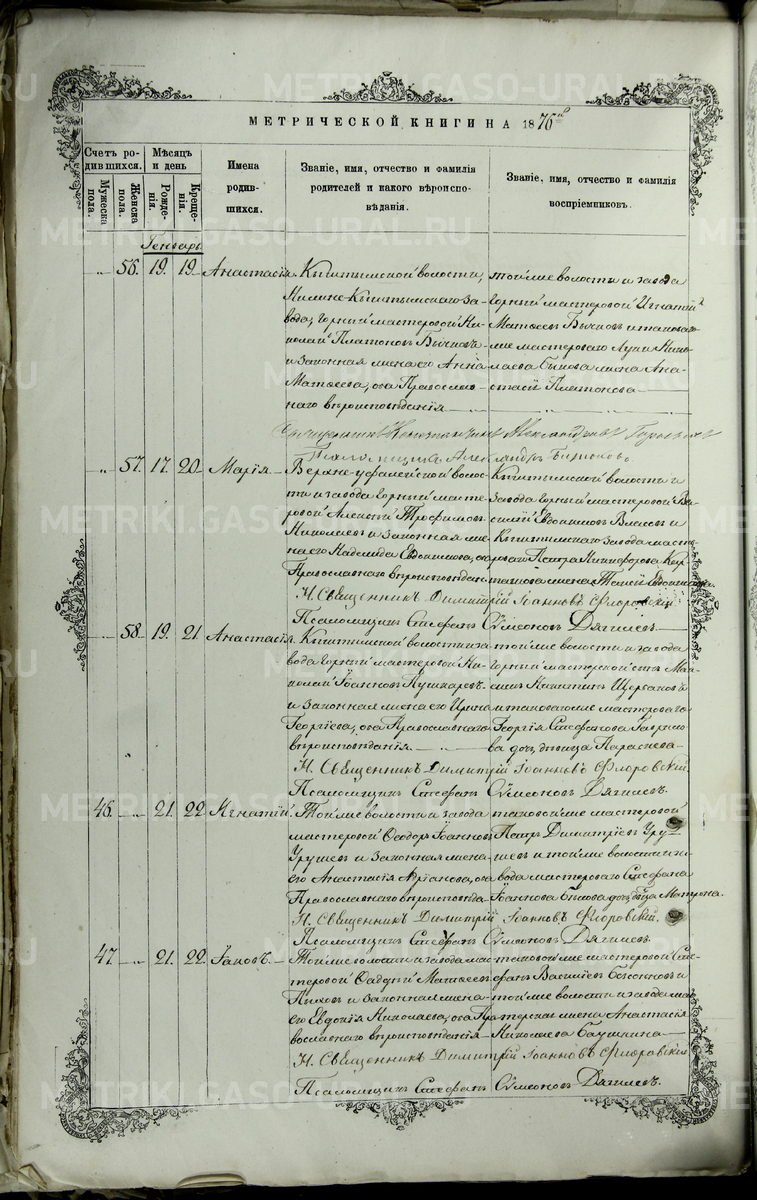 МЕТРИЧЕСКОЙ КНИГИ НА 1876й
Счетъ родившихся.
Мужеска пола.
Женска пола.
Мѣсяцъ и день
Рожденія.
Крещенія.
Имена родившихся.
Званіе, имя, отчество и фамилія родителей и какого вѣроисповѣданія.
Званіе, имя, отчество и фамилія воспріемниковъ.
Генварь
" 56. 19. 19. Анастасія.
Кыштымской волости,
Нижне-Кыштымскаго за-
вода, горный мастеровой Ни-
колай Платоновъ Бычковъ
и законная жена его Анна
Матвеева, оба Православ-
наго вѣроисповѣданія
той же волости и завода
горный мастеровой Игнатий
Матвеевъ Бычковъ и таковаго
же мастероваго Луки Нико-
лаева Быкова жена Ана-
стасія Платонова
Священникъ Александръ
Псаломщикъ Александръ Бирюковъ
" 57. 17. 20. Марія
Верхне-уфалейской волос-
ти и завода горный масте-
ровой Алексѣй Трофимовъ
Николаевъ и законная же-
на его Надежда Евдокимова, оба
Православнаго вѣроисповѣдан.
Кыштымской волости и
завода горный мастеровой Ва-
силій Евдокимовъ Власовъ и
Кыштымскаго завода масте-
роваго Петра Никифорова
жена Таисія Евдокимова
И. Священникъ Димитрій Іоанновъ Флоровскій
Псаломщикъ Стефанъ Сѵмеоновъ Дягилевъ
58. 19. 21. Анастасія.
Кыштымской волости и за-
вода горный мастеровой Ни-
колай Іоанновъ Пушкаревъ
и законная жена его Ирина
Георгіева, оба Православнаго
вѣроисповѣданія.
той же волости и завода
горный мастерской сынъ
Никитинъ Щербаковъ
и таковаго же мастероваго
Георгія Стефанова Гаврило-
ва дочь, дѣвица Параскева
И. Священникъ Димитрій Іоанновъ Флоровскій.
Псаломщикъ Стефанъ Сѵмеоновъ Дягилевъ.
46. 21. 22. Игнатій.
Той же волости и завода
мастеровой Ѳеодоръ Іоанновъ
Урушевъ и законная жена
его Анастасія, оба
Православнаго вѣроисповѣда-
таковой же мастеровой
Петръ Димитріевъ Уру-
шевъ и той же волости и
завода мастероваго Стефана
Іоаннова Быкова дочь дѣвица Матрона.
И. Священникъ Димитрій Іоанновъ Флоровскій.
Псаломщикъ Стефанъ Сѵмеоновъ Дягилевъ.
47. 21. 22. Іаковъ.
Той же волости и завода мас-
теровой Фаддей Матвеевъ
Пиховъ и законная жена
его Евдокія Николаева, оба Пра-
вославнаго вѣроисповѣданія
таковой же мастеровой Сте-
фанъ Василіевъ и
той же волости и завода мас-
терская жена Анастасія
Николаева
И. Священникъ Димитрій Іоанновъ Флоровскій
Псаломщикъ Стефанъ Сѵмеоновъ Дягилевъ.
METRIKI.GASO-URAL.RU